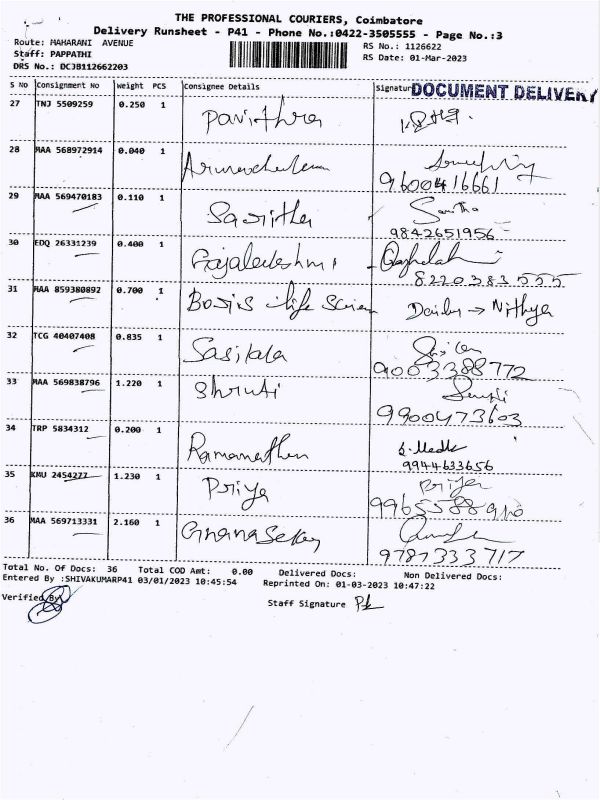 THE PROFESSIONAL COURIERS, Coimbatore
Delivery Runsheet - P41 - Phone No.:0422-3505555 - Page No.:3
Route: MAHARANI AVENUE
RS No.: 1126622
Staff: PAPPATHI
RS Date: 01-Mar-2023
DRS No.: DCJB112662203
S No Consignment No Weight PCS Consignee Details Signatur
DOCUMENT DELIVERY
27 TNJ 5509259 0.250 1 Pavithra
28 MAA 568972914 0.040 1 Arunachalam
9600416661
29 MAA 569470183 0.110 1 Savitha
9842651956
30 EDQ 26331239 0.400 1 Gajalakshmi
8220383555
31 MAA 859380892 0.700 1 life Nithya
32 TCG 40407408 0.835 1 Sasikala
9003388772
33 MAA 569838796 1.220 1 Shruti
9900473603
34 TRP 5834312 0.200 1 Ramanathan
9944633656
35 KMU 2454277 1.230 1 Priya Priya
36 MAA 569713331 2.160 1 Gnanasekar
9787333717
Total No. Of Docs: 36 Total COD Amt: 0.00 Delivered Docs: Non Delivered Docs:
Entered By :SHIVAKUMARP41 03/01/2023 10:45:54 Reprinted On: 01-03-2023 10:47:22
Verified By
Staff Signature